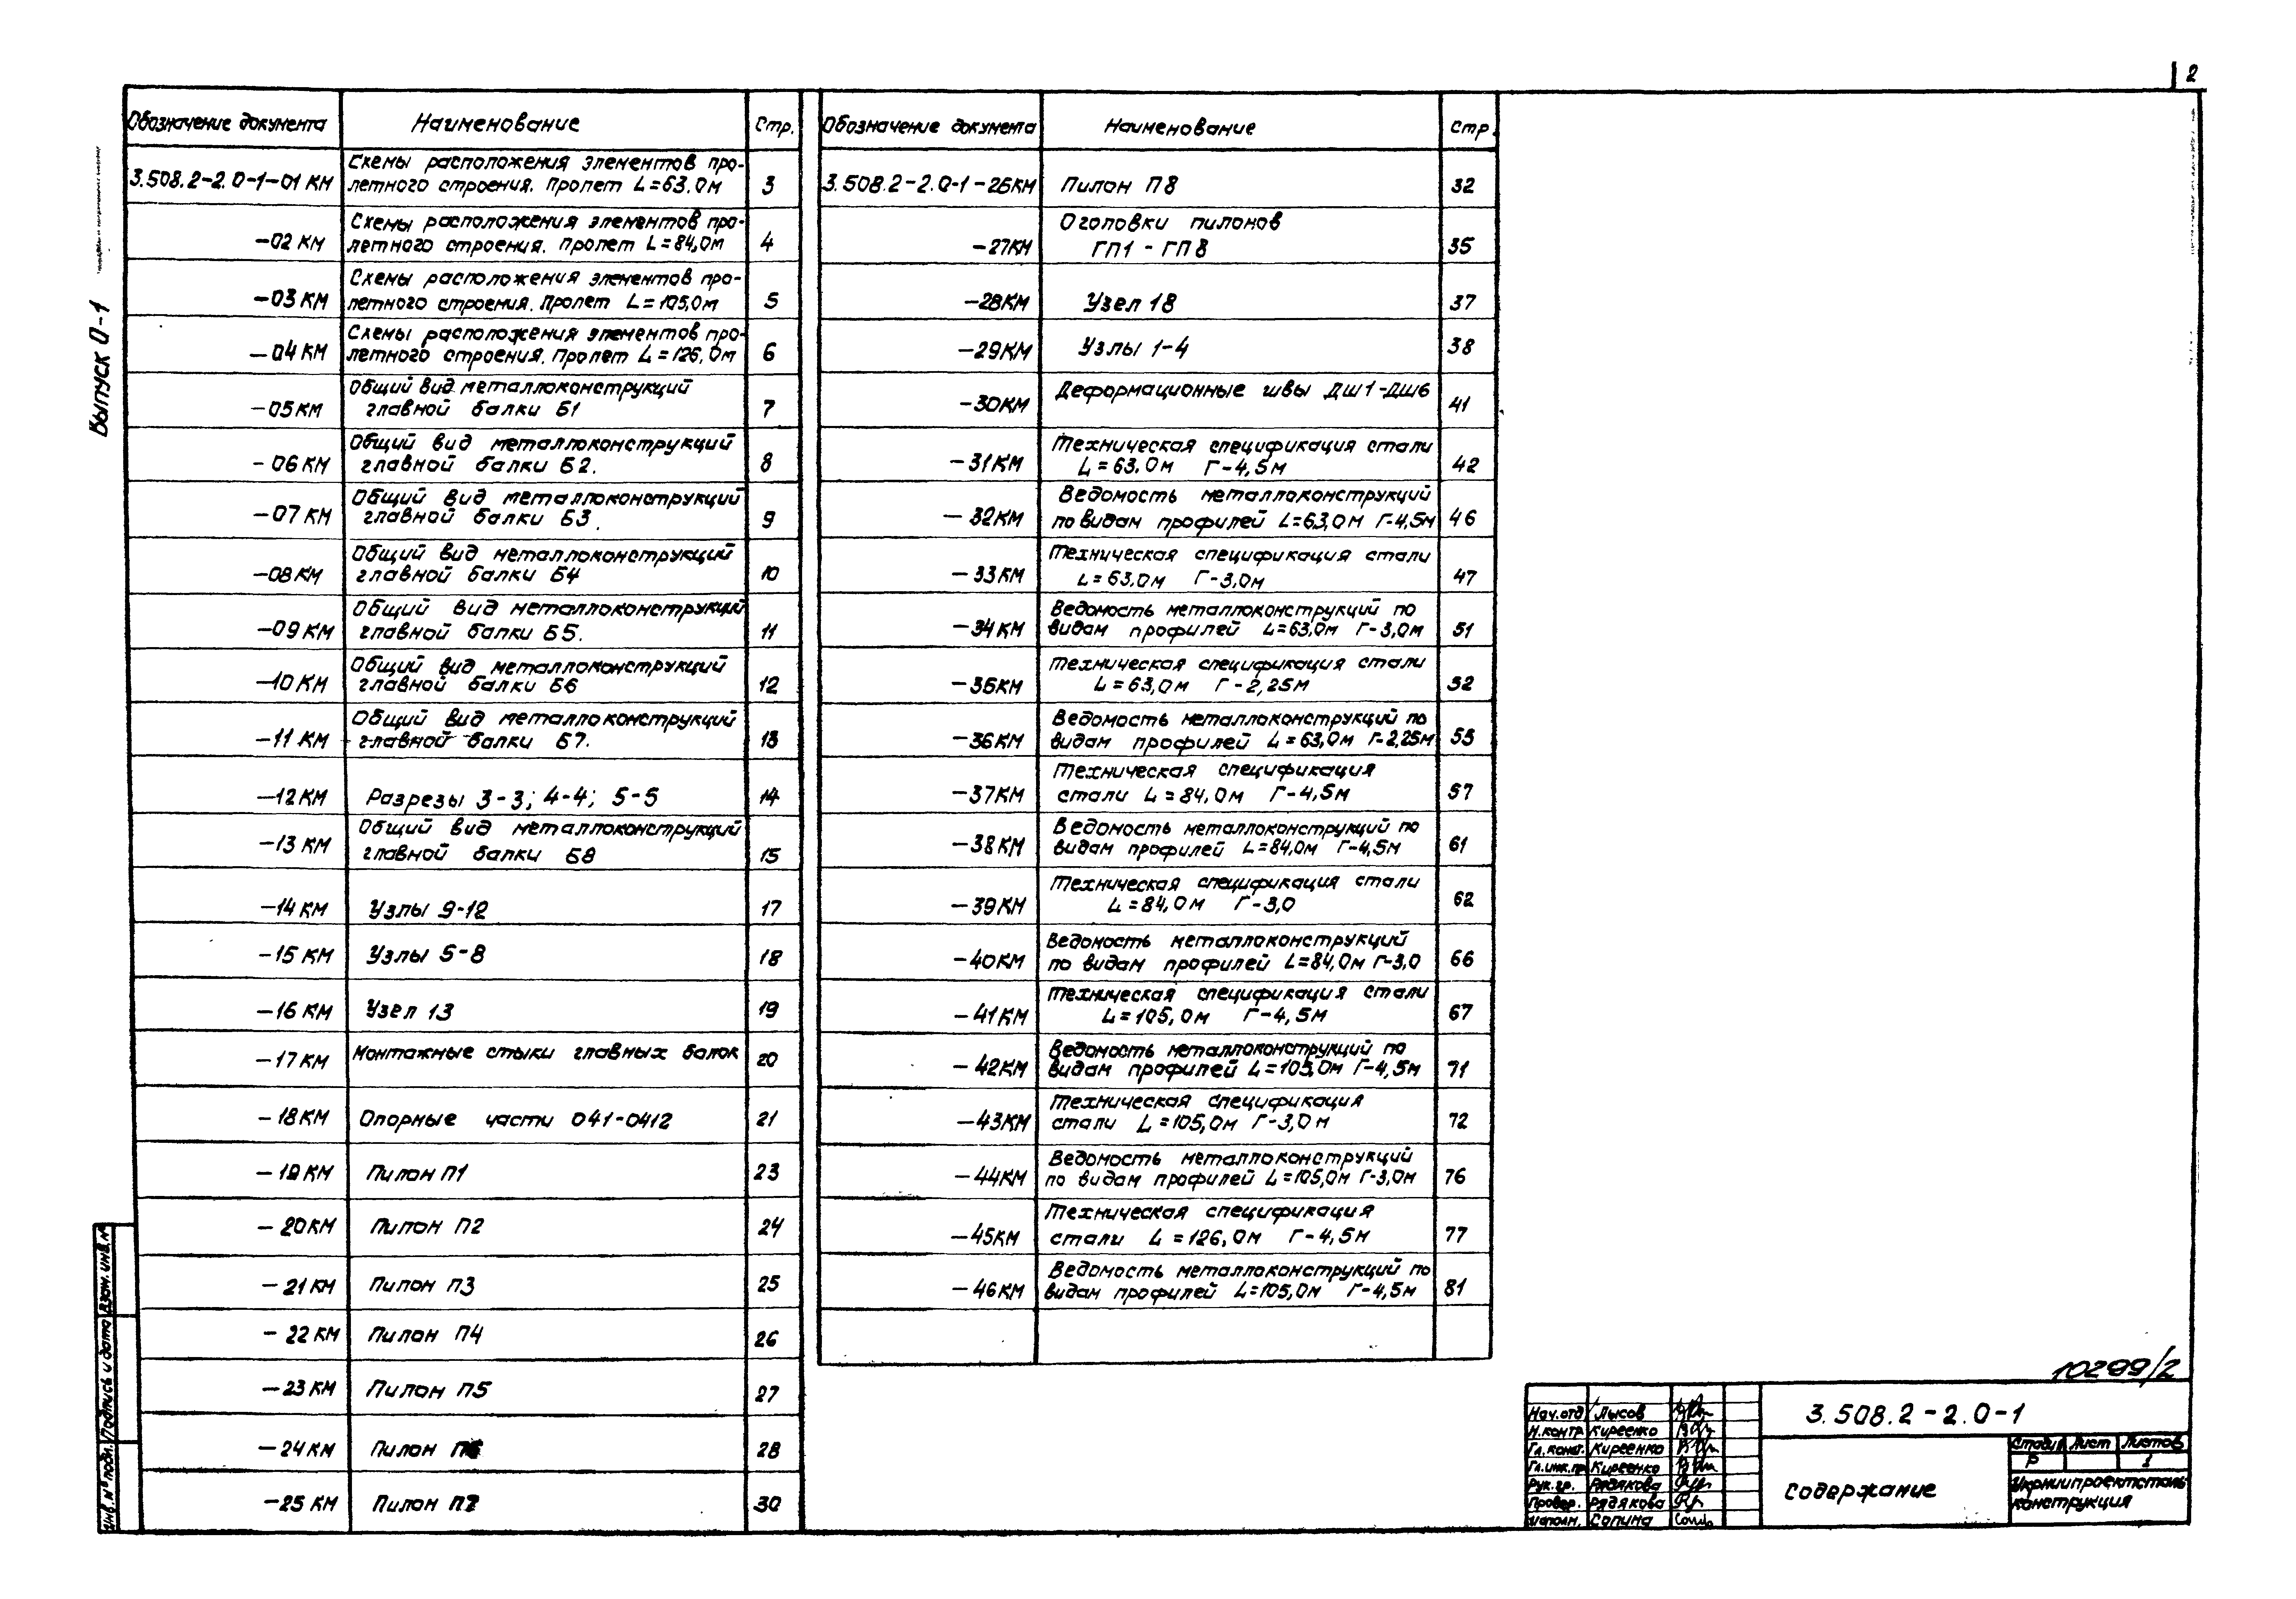 2
Выпуск 0-1
Обозначение документа Наименование Стр.
3.508.2-2.0-1-01 КМ Схемы расположения элементов про-
летного строения. Пролет L=63.0м 3
-02 КМ Схемы расположения элементов про-
летного строения. Пролет L=84,0м 4
-03 КМ Схемы расположения элементов про-
летного строения. Пролет L=105,0м 5
-04 КМ Схемы расположения элементов про-
летного строения. Пролет L=126,0м 6
-05 КМ Общий вид металлоконструкций
главной балки Б1 7
-06 КМ Общий вид металлоконструкций
главной балки Б2. 8
-07 КМ Общий вид металлоконструкций
главной балки Б3. 9
-08 КМ Общий вид металлоконструкций
главной балки Б4 10
-09 КМ Общий вид металлоконструкций
главной балки Б5. 11
-10 КМ Общий вид металлоконструкций
главной балки Б6 12
-11 КМ Общий вид металлоконструкций
главной балки Б7. 13
-12 КМ Разрезы 3-3; 4-4; 5-5 14
-13 КМ Общий вид металлоконструкций
главной балки Б8 15
-14 КМ Узлы 9-12 17
-15 КМ Узлы 5-8 18
-16 КМ Узел 13 19
-17 КМ Монтажные стыки главных балок 20
-18 КМ Опорные части ОЧ1-ОЧ12 21
-19 КМ Пилон П1 23
-20 КМ Пилон П2 24
-21 КМ Пилон П3 25
-22 КМ Пилон П4 26
-23 КМ Пилон П5 27
-24 КМ Пилон П6 28
-25 КМ Пилон П7 30
Обозначение документа Наименование Стр.
3.508.2-2.0-1-26КМ Пилон П8 32
-27КМ Оголовки пилонов
ГП1 - ГП8 35
-28КМ Узел 18 37
-29КМ Узлы 1-4 38
-30КМ Деформационные швы ДШ1-ДШ6 41
-31КМ Техническая спецификация стали
L=63.0м Г-4,5м 42
-32КМ Ведомость металлоконструкций
по видам профилей L=63,0м Г-4,5м 46
-33КМ Техническая спецификация стали
L=63.0м Г-3,0м 47
-34КМ Ведомость металлоконструкций по
видам профилей L=63,0м Г-3,0м 51
-35КМ Техническая спецификация стали
L=63,0м Г-2,25м 52
-36КМ Ведомость металлоконструкций по
видам профилей L=63,0м Г-2,25м 55
-37КМ Техническая спецификация
стали L=84,0м Г-4,5м 57
-38КМ Ведомость металлоконструкций по
видам профилей L=84,0м Г-4,5м 61
-39КМ Техническая спецификация стали
L=84,0м Г-3,0 62
-40КМ Ведомость металлоконструкций
по видам профилей L=84,0м Г-3,0 66
-41КМ Техническая спецификация стали
L=105,0м Г-4,5м 67
-42КМ Ведомость металлоконструкций по
видам профилей L=105,0м Г-4,5м 71
-43КМ Техническая спецификация
стали L=105,0м Г-3,0м 72
-44КМ Ведомость металлоконструкций
по видам профилей L=105,0м Г-3,0м 76
-45КМ Техническая спецификация
стали L=126,0м Г-4,5м 77
-46КМ Ведомость металлоконструкций по
видам профилей L=105,0м Г-4,5м 81
10299/2
Нач.отд Лысов
Н.контр Киреенко
Гл.конст. Киреенко
Гл.инж.пр Киреенко
Рук.гр. Рядякова
Провер. Рядякова
Исполн. Сапина
3.508.2-2.0-1
Содержание
Стадия Лист Листов
Р 1
Укрниипроектсталь
конструкция
Инв.№ подл. Подпись и дата Взам.инв.№